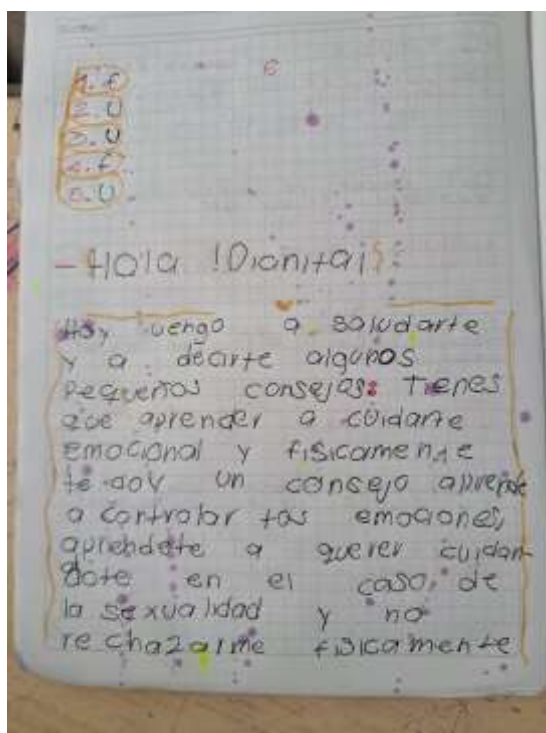 6
1. f
2. U
3. U
4. f
5. U
- Hola ! Dianita¡
Hoy vengo a saludarte
y a decirte algunos
pequeños consejos: Tienes
que aprender a cuidarte
emocional y fisicamente
te doy un consejo aprende
a controlar tus emociones,
aprendete a querer cuidan-
dote en el caso, de
la sexualidad y no
rechazarme fisicamente